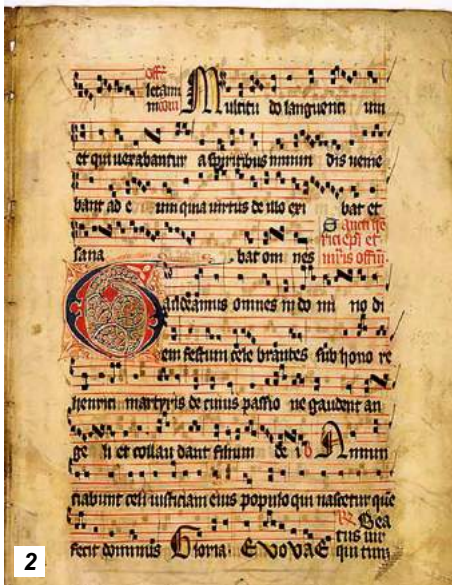 off
letam
mcom Multitu do languenti um
et qui uexabantur a spiritibus inmun dis uenie
bant ad e um quia uirtus de illo exi bat et
sana bat om nes
Gaudeamus omnes in do mi no di
em festum cele brantes sub hono re
henrici martyris de cuius passio ne gaudent an
ge li et collau dant filium de i Annun
ciabunt celi iusticiam eius populo qui nascetur que
fecit dominus Gloria EVOVAE Bea
tus uir
qui tim
2